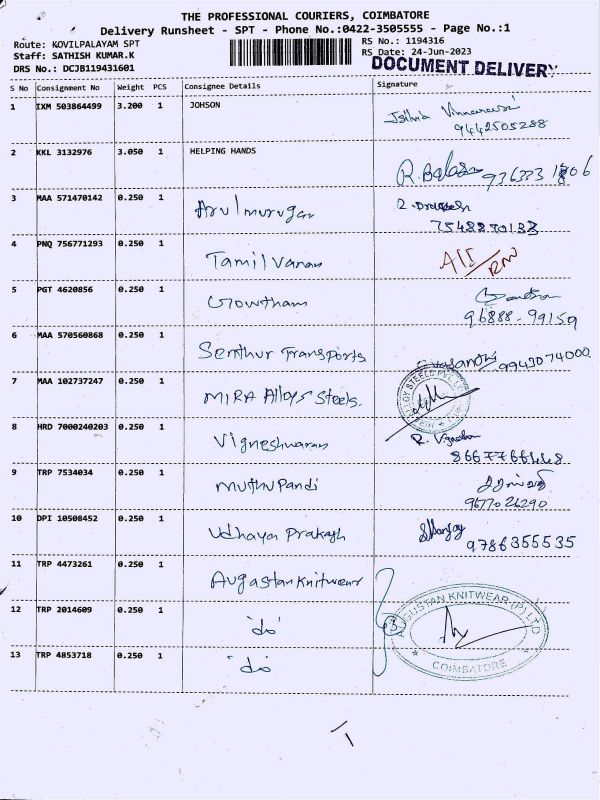 THE PROFESSIONAL COURIERS, COIMBATORE
Delivery Runsheet - SPT - Phone No.:0422-3505555 - Page No.:1
Route: KOVILPALAYAM SPT
Staff: SATHISH KUMAR.K
DRS No.: DCJB119431601
RS No.: 1194316
RS Date: 24-Jun-2023
DOCUMENT DELIVERY
S No Consignment No Weight PCS Consignee Details Signature
1 IXM 503864499 3.200 1 JOHSON
9442505288
2 KKL 3132976 3.050 1 HELPING HANDS
R. Balas
3 MAA 571470142 0.250 1 Arulmurugan
4 PNQ 756771293 0.250 1 Tamilvanan
5 PGT 4620856 0.250 1 Gowtham
96888-99159
6 MAA 570560868 0.250 1 Senthur Transports
9943074000
7 MAA 102737247 0.250 1 MIRA Alloys Steels.
8 HRD 7000240203 0.250 1 Vigneshwaran
9 TRP 7534034 0.250 1 Muthu Pandi
9677026290
10 DPI 10508452 0.250 1 Udhaya Prakash
9786355535
11 TRP 4473261 0.250 1 Augastan Knitwear
12 TRP 2014609 0.250 1 "do"
3
AUGUSTAN KNITWEAR (P) LTD
COIMBATORE
13 TRP 4853718 0.250 1 "do"